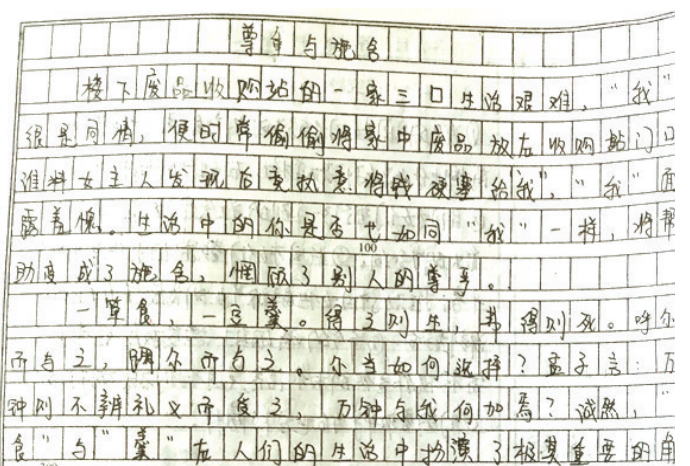 尊重与施舍
楼下废品收购站的一家三口生活艰难，"我"
很是同情，便时常偷偷将家中废品放在收购站门口
谁料女主人发现后竟执意将钱硬塞给"我"，"我"面
露羞愧。生活中的你是否也如同"我"一样，将帮
100
助变成了施舍，惘顾了别人的尊严。
一箪食，一豆羹。得之则生，弗得则死。呼尔
而与之，蹴尔而与之。尔当如何选择？孟子言：万
钟则不辨礼义而受之，万钟与我何加焉？诚然，"
食"与"羹"在人们的生活中扮演了极其重要的角
200